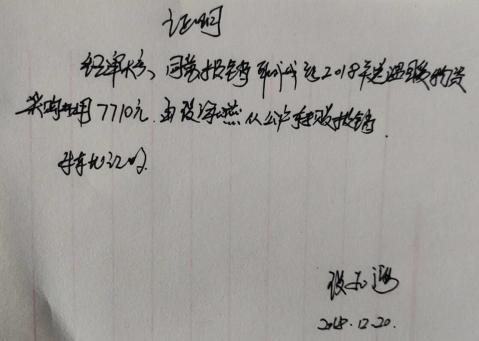 证明
经审核、同意报销 2018年送温暖物资
采购费用7710元.由段 燕从公户转账报销.
特此证明.
段
2018.12.20.